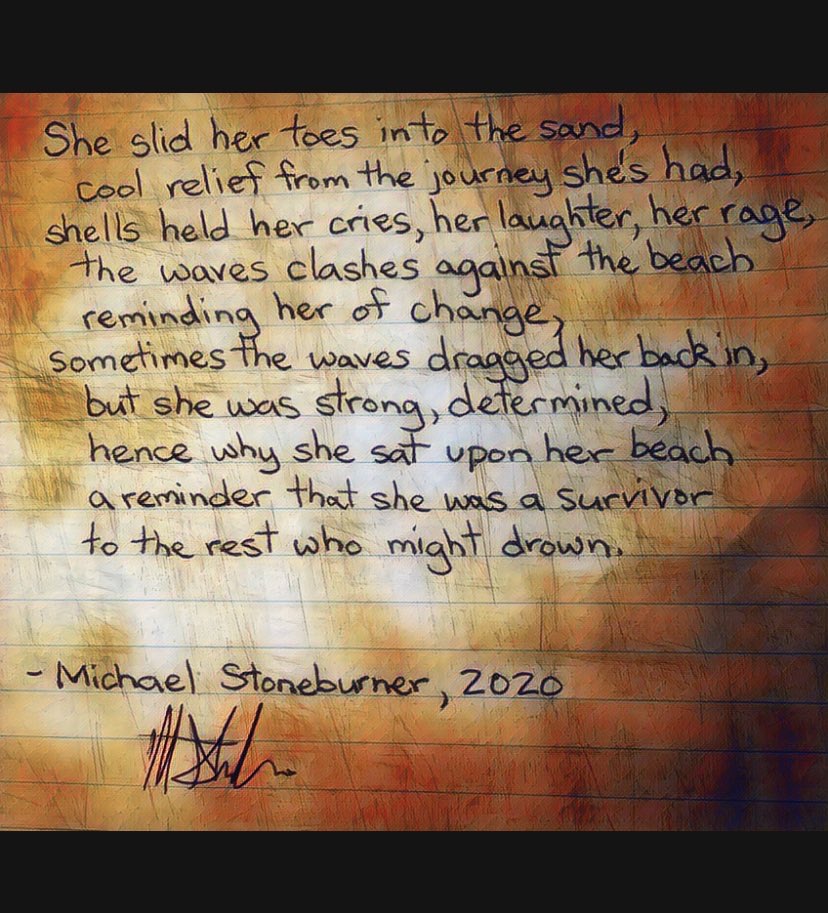 She slid her toes into the sand,
cool relief from the journey she's had,
shells held her cries, her laughter, her rage,
the waves clashes against the beach
reminding her of change,
sometimes the waves dragged her back in,
but she was strong, determined,
hence why she sat upon her beach
a reminder that she was a survivor
to the rest who might drown.
- Michael Stoneburner, 2020